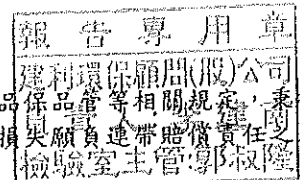 報告專用章
建利環保顧問(股)公司
品保品管等相關規定，秉
損失願負連帶賠償責任之
檢驗室主管:郭淑